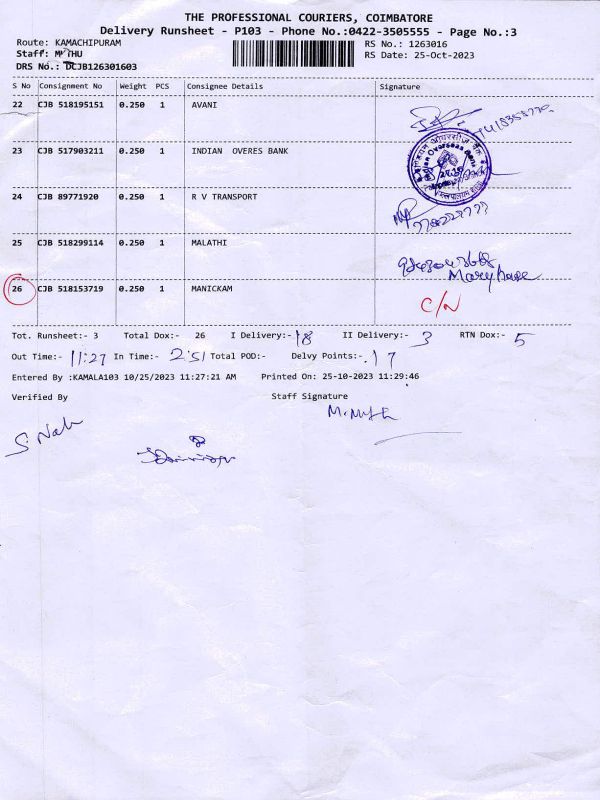 THE PROFESSIONAL COURIERS, COIMBATORE
Delivery Runsheet - P103 - Phone No.:0422-3505555 - Page No.:3
Route: KAMACHIPURAM RS No.: 1263016
Staff: MUTHU RS Date: 25-Oct-2023
DRS No.: DCJB126301603
S No Consignment No Weight PCS Consignee Details Signature
22 CJB 518195151 0.250 1 AVANI
23 CJB 517903211 0.250 1 INDIAN OVERES BANK
24 CJB 89771920 0.250 1 R V TRANSPORT
25 CJB 518299114 0.250 1 MALATHI
26 CJB 518153719 0.250 1 MANICKAM C/N
Tot. Runsheet:- 3 Total Dox:- 26 I Delivery:- 18 II Delivery:- 3 RTN Dox:- 5
Out Time:- 11:27 In Time:- 2:51 Total POD:- Delvy Points:- 17
Entered By :KAMALA103 10/25/2023 11:27:21 AM Printed On: 25-10-2023 11:29:46
Verified By Staff Signature